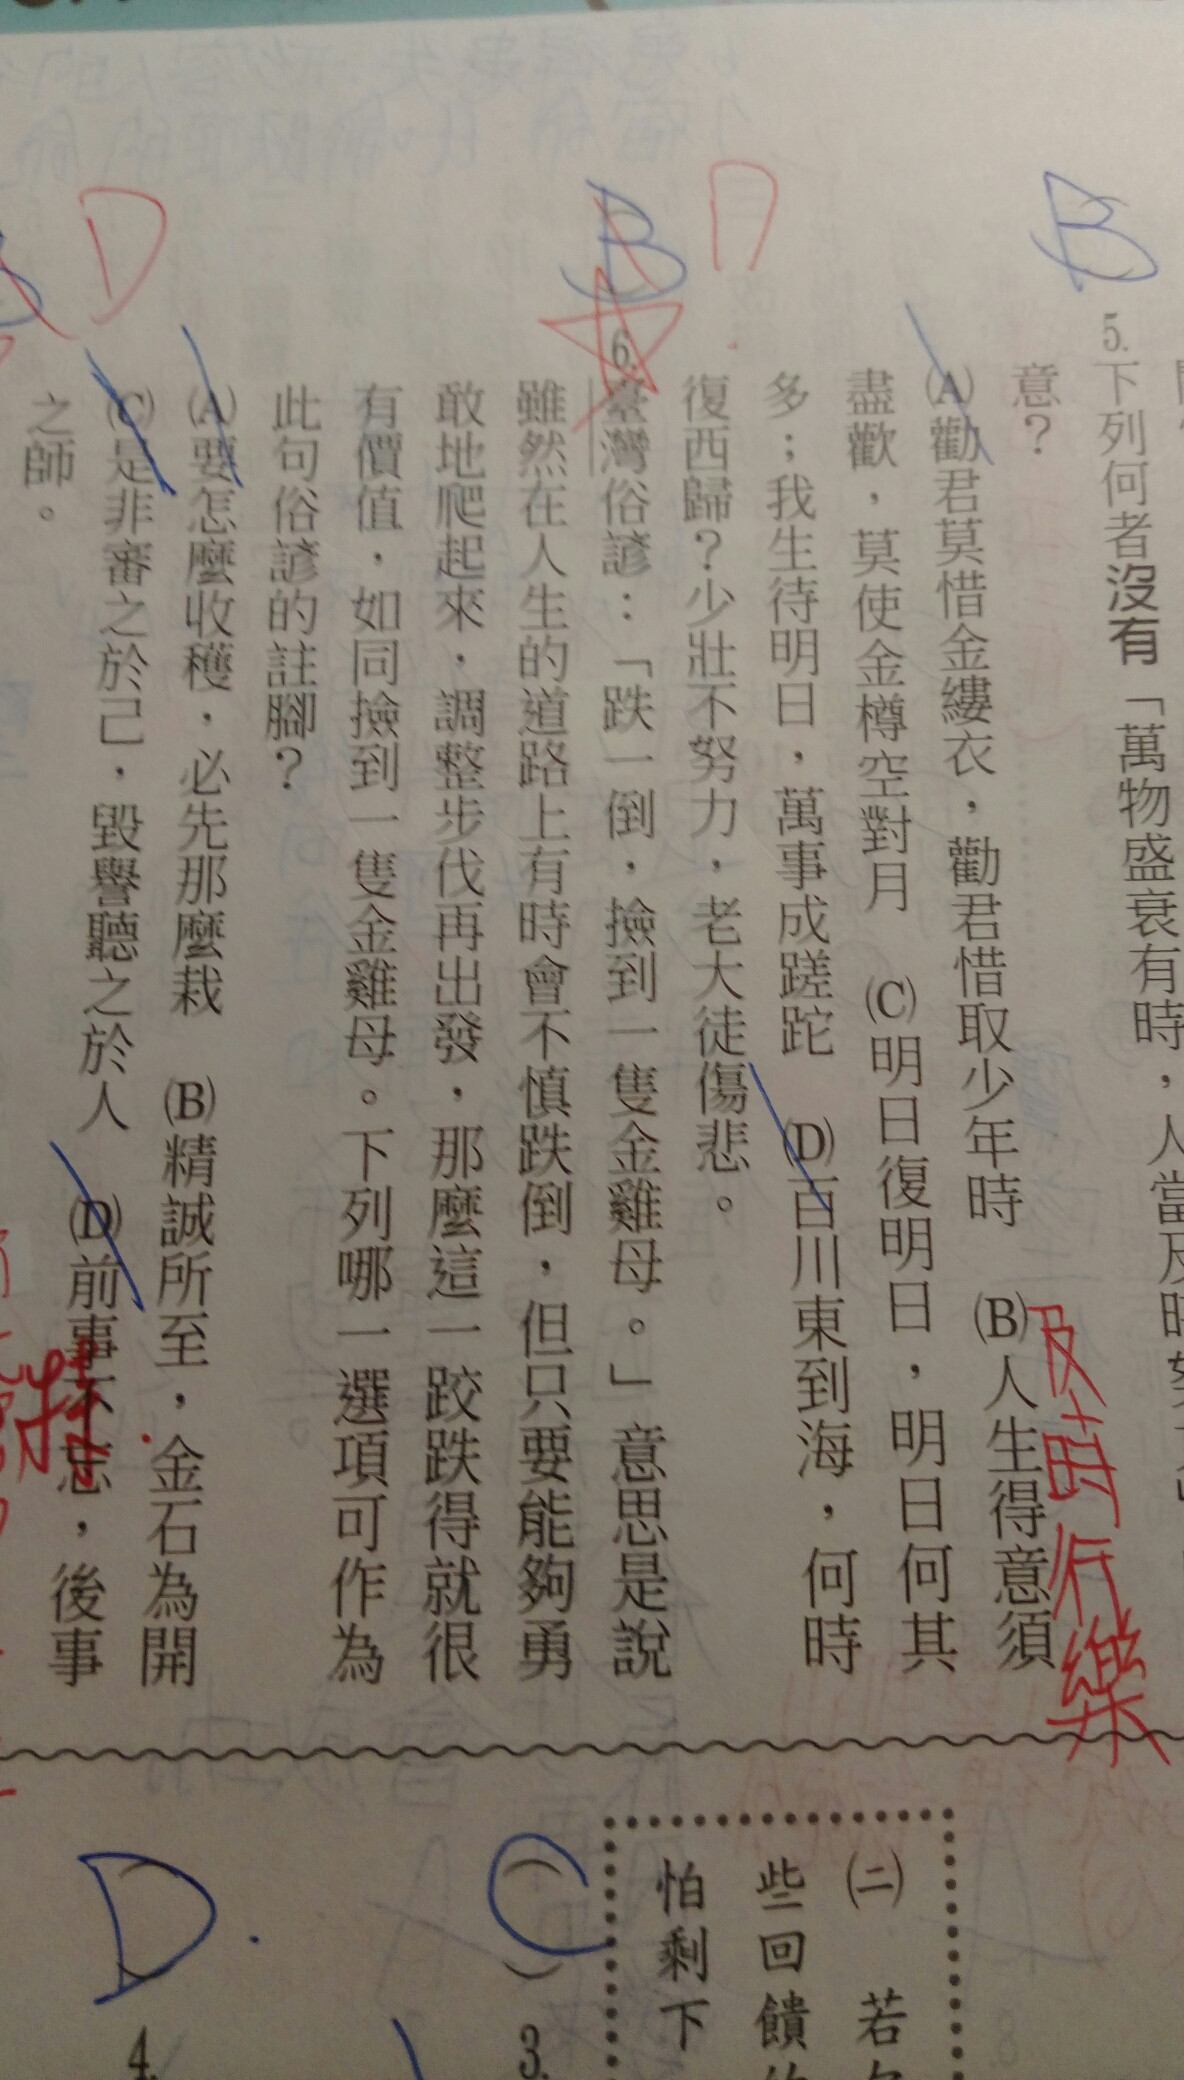 B
5.下列何者沒有「萬物盛衰有時，人當及時
意？
(A)勸君莫惜金縷衣，勸君惜取少年時　(B)人生得意須
及時行樂
盡歡，莫使金樽空對月　(C)明日復明日，明日何其
多；我生待明日，萬事成蹉跎　(D)百川東到海，何時
復西歸？少壯不努力，老大徒傷悲。
B D
6.臺灣俗諺：「跌一倒，撿到一隻金雞母。」意思是說
雖然在人生的道路上有時會不慎跌倒，但只要能夠勇
敢地爬起來，調整步伐再出發，那麼這一跤跌得就很
有價值，如同撿到一隻金雞母。下列哪一選項可作為
此句俗諺的註腳？
D
(A)要怎麼收穫，必先那麼栽　(B)精誠所至，金石為開
(C)是非審之於己，毀譽聽之於人　(D)前事不忘，後事
之師。
(二)　若
些回饋
怕剩下
(C)
3.
D.
4.